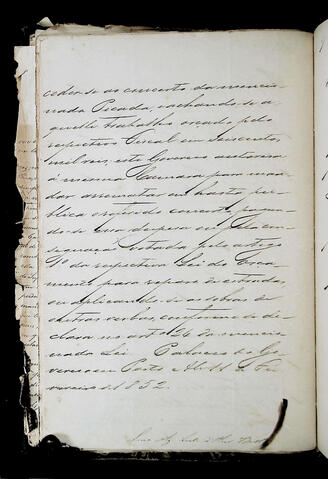 ceder-se ao concerto da mencio-
nada Picada, e achando-se a-
quelle trabalho orçado pelo
respectivo Fiscal em duzentos
mil reis, este Governo autorisa
á mesma Camara para man-
dar arrematar em hasta pu-
blica o referido concerto, pagan-
do-se essa despesa ou pela con-
signação votada pelo artigo
1º da respectiva Lei do Orça-
mento para reparo de estradas,
ou applicando-se as sobras de
outras verbas, conforme de-
clara no art.º 24 da mencio-
nada Lei. Palacio do Go-
verno em Porto Alegre 11 de Fe-
vereiro de 1852.